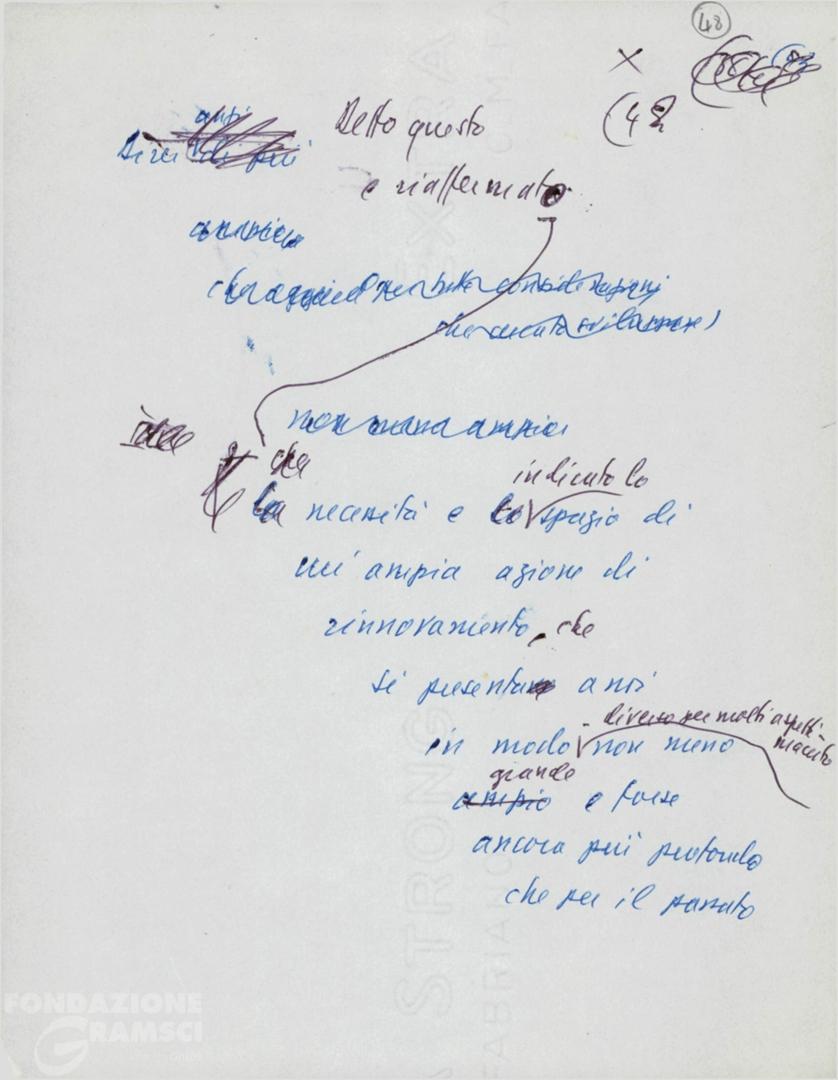 48
×
(48
Detto questo
e riaffermato
anzi
Direi di più
ancora
non meno ampia
che
indicato lo
la necessità e lo spazio di
un'ampia azione di
rinnovamento, che
si presenta a noi
diverso per molti aspetti -
ma certo
in modo non meno
grande
ampio e forse
ancora più profondo
che per il passato
STRONG
EXTRA
FABRIANO
FONDAZIONE
GRAMSCI